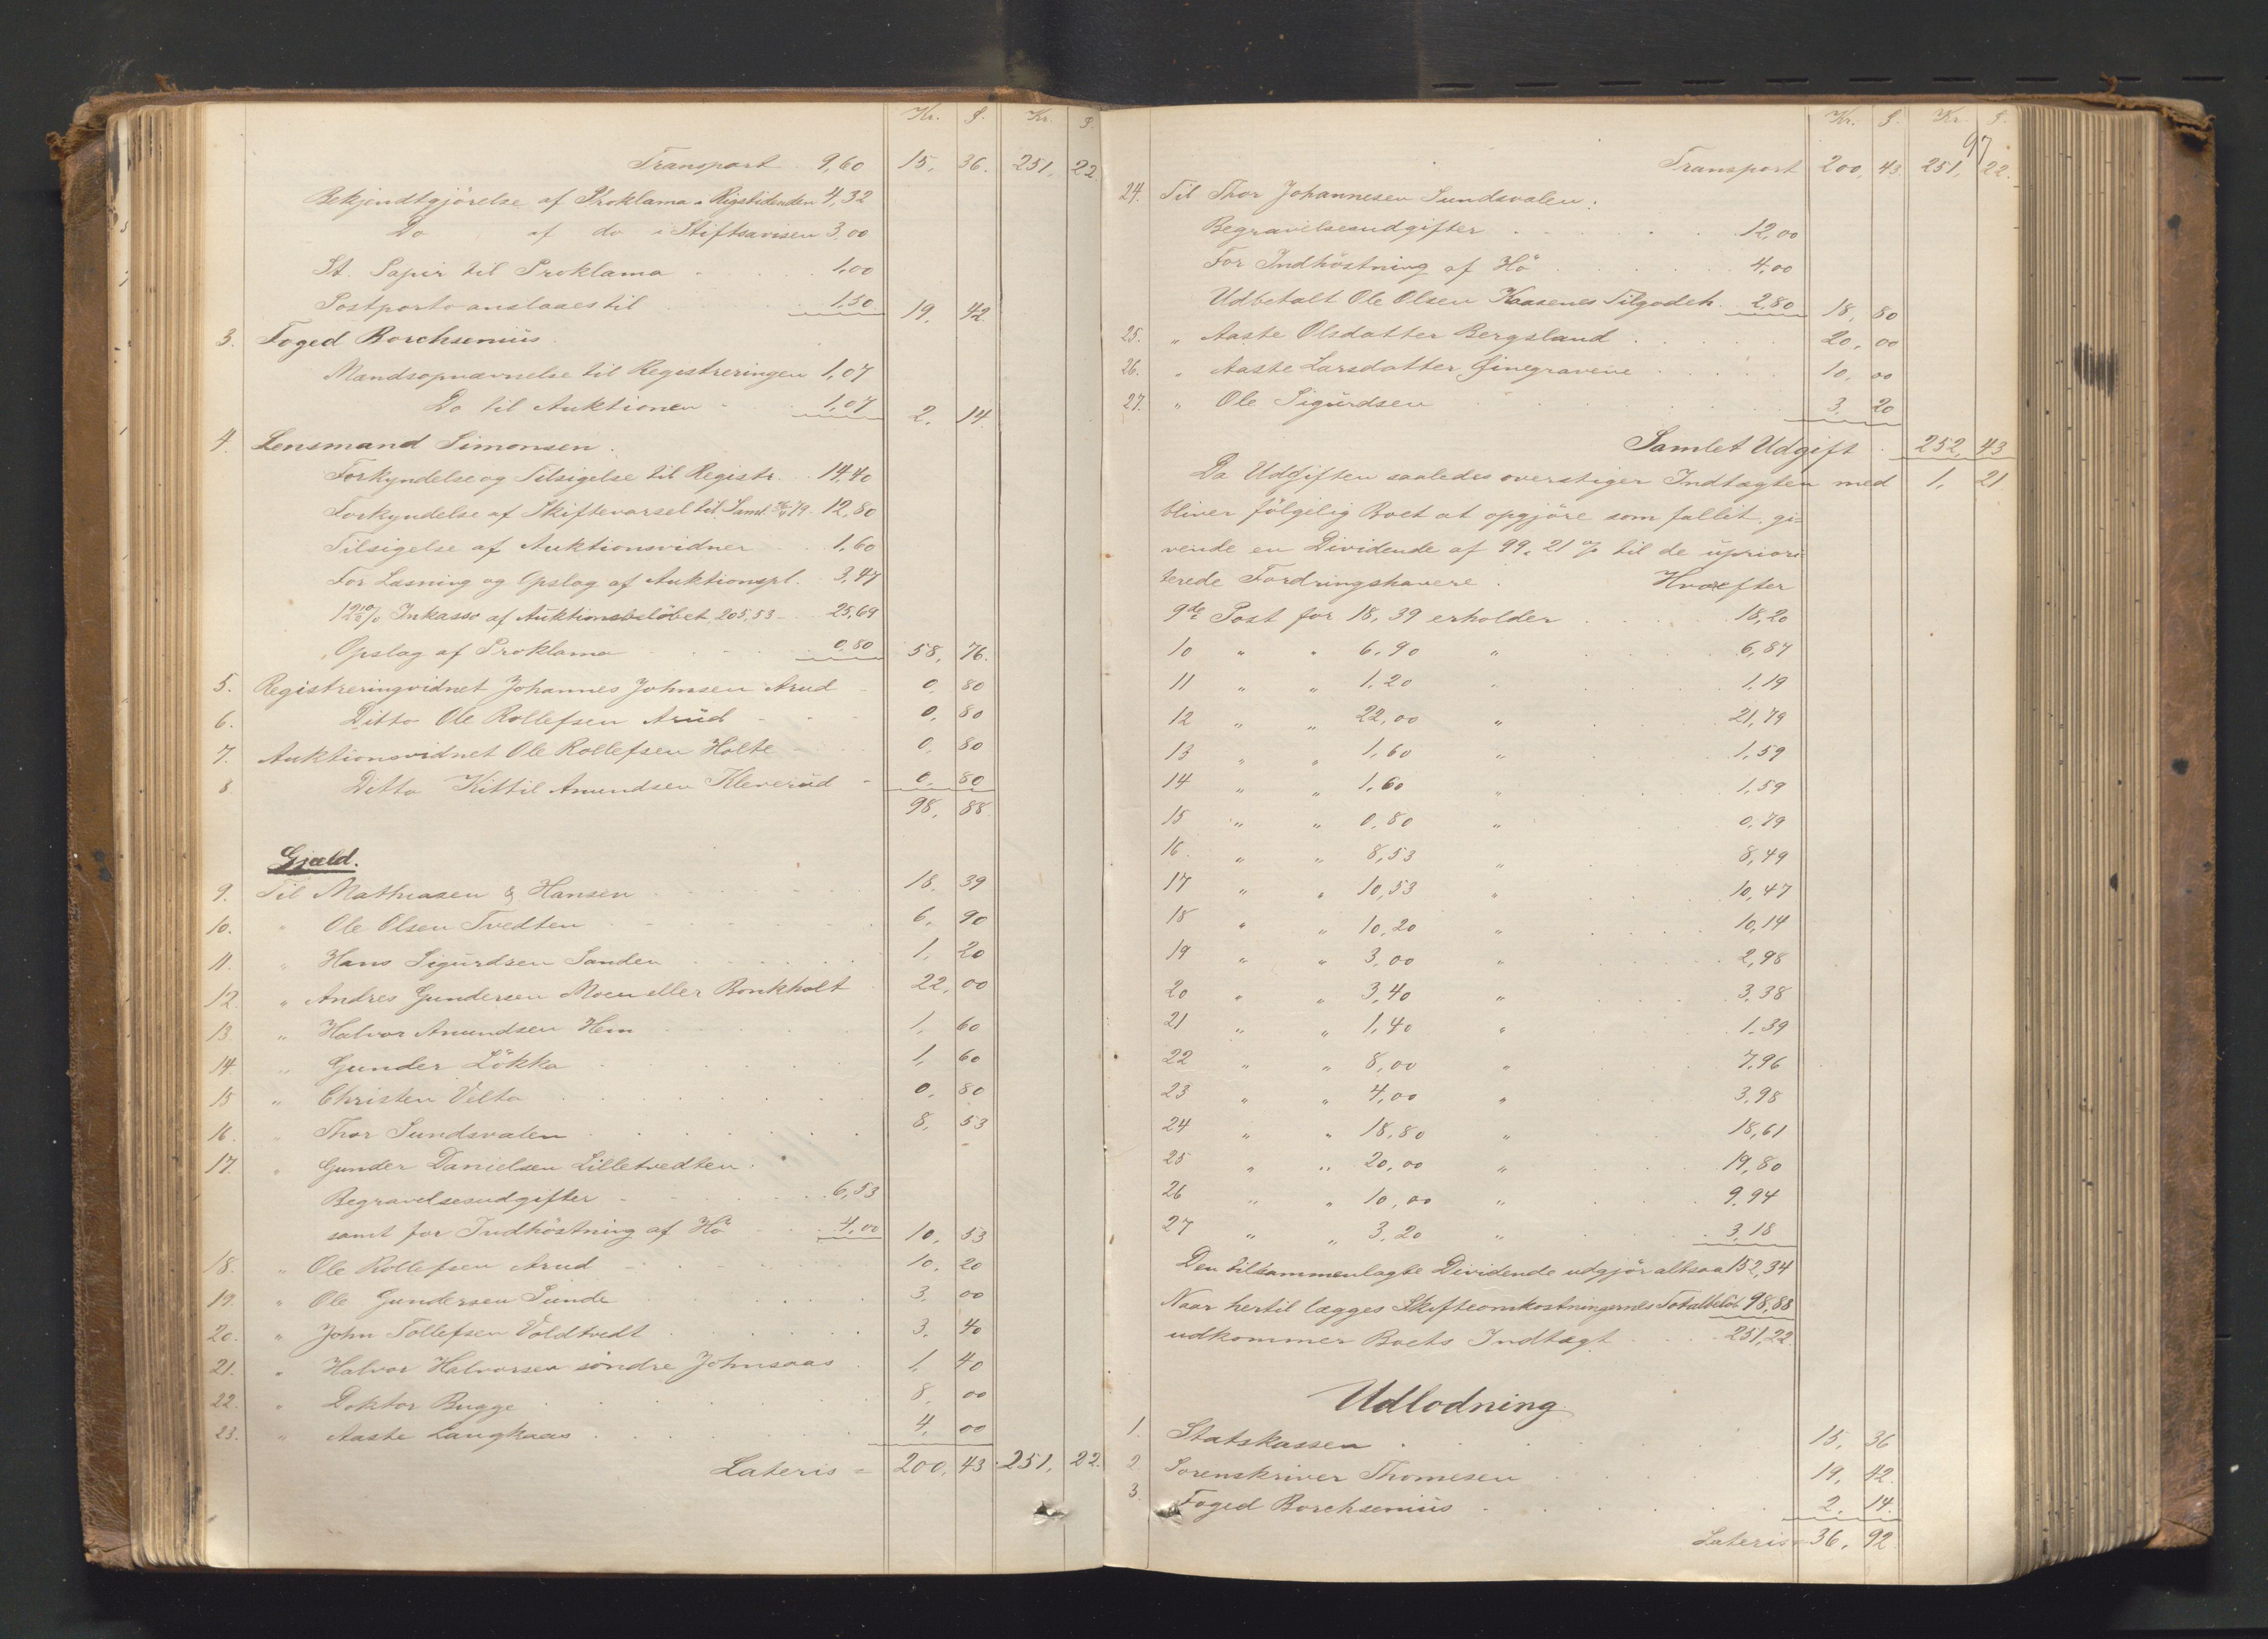 Kr. § Kr. §
Transport . 9,60 15, 36. 251, 22.
Bekjendtgjörelse af Proklama i Rigstidenden 4,32
Do af do i Stiftsavisen 3,00
St. Papir til Proklama . . . 1,00
Postporto anslaaes til . . . 1,50 19, 42.
3. Foged Borchsenius.
Mandsopnævnelse til Registreringen 1,07
Do til Auktionen - . . 1,07 2, 14.
4. Lensmand Simonsen.
Forkyndelse og Tilsigelse til Registr. . . 14,40
Forkyndelse af Skiftevarsel til Saml. 79. 12,80
Tilsigelse af Auktionsvidner . . 1,60
For Læsning og Opslag af Auktionspl. 3,47
12½% Inkasso af Auktionsbelöbet, 205,53 - 25,69
Opslag af Proklama . . . 0,80 58, 76.
5. Registreringvidnet Johannes Johnsen Arud - 0, 80
6. Ditto Ole Rollefsen Arud - - - 0, 80
7. Auktionsvidnet Ole Rollefsen Holte - 0, 80
8. Ditto Kittil Amundsen Kleverud - 0, 80
98, 88
Gjæld.
9. Til Mathiasen & Hansen 18, 39
10. " Ole Olsen Tvedten 6, 90
11. " Hans Sigurdsen Sanden 1, 20
12. " Andres Gundersen Moen eller Bonkholt 22, 00
13. " Halvor Amundsen Hem 1, 60
14. " Gunder Lökka 1, 60
15 " Christen Velta 0, 80
16. " Thor Sundsvalen 8, 53
17. " Gunder Danielsen Lilletvedten.
Begravelsesudgifter - . . 6,53
samt for Indhöstning af Hö - . . 4,00 10, 53
18. " Ole Rollefsen Arud 10, 20
19. " Ole Gundersen Sunde 3, 00
20. " John Tollefsen Voldtvedt 3, 40
21. " Halvor Halvorsen söndre Johnsaas 1, 40
22. " Doktor Bugge 8, 00
23. " Aaste Langkaas 4, 00
Lateris = 200, 43 251, 22.
97
Kr. § Kr. §
Transport 200, 43. 251, 22.
24. Til Thor Johannesen Sundsvalen:
Begravelsesudgifter . . . 12,00
For Indhöstning af Hö . . . 4,00
Udbetalt Ole Olsen Kaasenes Tilgodeh. 2,80 18, 80
25. " Aaste Olsdatter Bergsland 20, 00
26. " Aaste Larsdatter 10, 00
27. " Ole Sigurdsen 3, 20
Samlet Udgift . 252, 43
Da Udgiften saaledes overstiger Indtægten med 1, 21
bliver fölgelig Boet at opgjöre som fallit, gi-
vende en Dividende af 99,21 % til de upriori
terede Fordringshavere. Hvorefter
9de Post for 18,39 erholder . . . 18,20
10 " " 6,90 " 6,87
11 " " 1,20 " 1,19
12 " " 22,00 " 21,79
13 " " 1,60 " 1,59
14 " " 1,60 " 1,59
15 " " 0,80 " 0,79
16. " " 8,53 " 8,49
17 " " 10,53 " 10,47
18 " " 10,20 " 10,14
19 " " 3,00 " 2,98
20 " " 3,40 " 3,38
21 " " 1,40 " 1,39
22 " " 8,00 " 7,96
23 " " 4,00 " 3,98
24 " " 18,80 " 18,61
25 " " 20,00 " 19,80
26 " " 10,00 " 9,94
27 " " 3,20 " 3,18
Den tilsammenlagte Dividende udgjör altsaa 152,34
Naar hertil lægges Skifteomkostningernes Totalbelöb 98,88
udkommer Boets Indtægt . . . 251,22
Udlodning
1. Statskassen 15, 36
2. Sorenskriver Thomesen 19, 42.
3. Foged Borchsenius 2, 14.
Lateris 36, 92